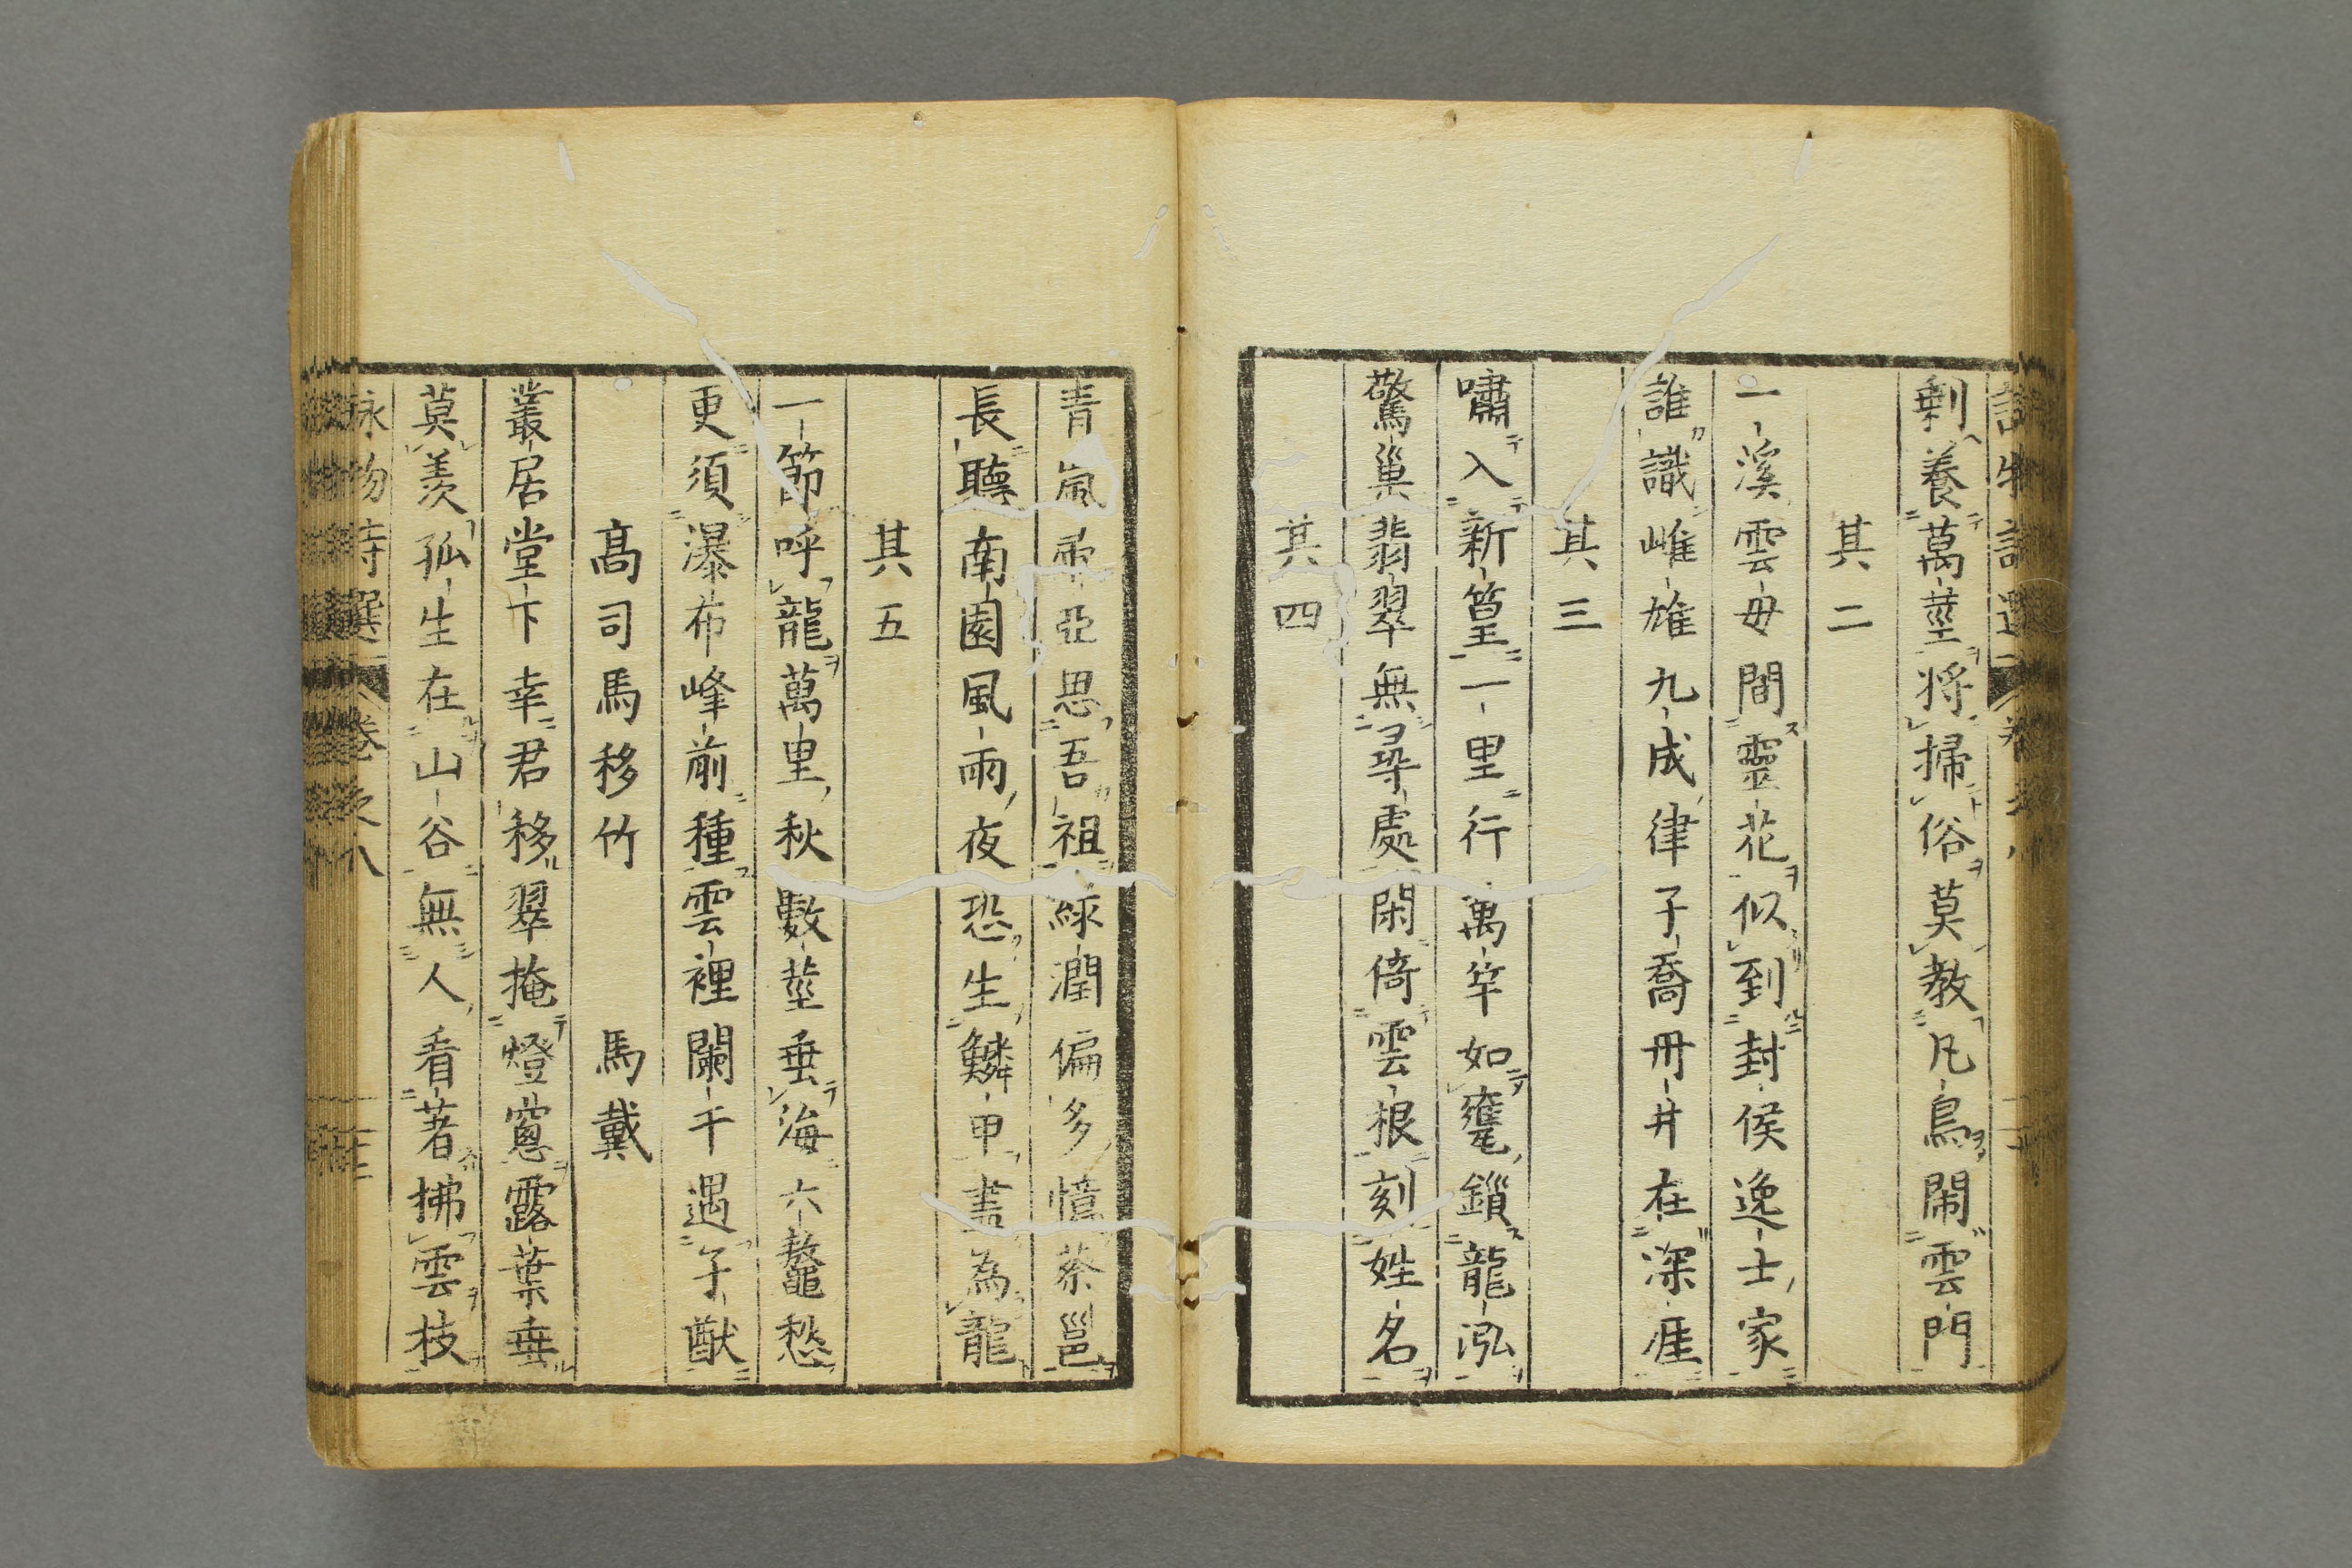 剩養萬莖將掃俗莫教凡鳥閙雲門
其二
一溪雲母間靈花似到封侯逸士家
誰識雌雄九成律子喬丹井在深崖
其三
嘯入新篁一里行萬竿如甕鎖龍泓
驚巢翡翠無尋處閑倚雲根刻姓名
其四
青嵐亞思吾祖綠潤偏多憶蔡邕
長聽南園風雨夜恐生鱗甲盡為龍
其五
一節呼龍萬里秋數莖垂海六鼇愁
更須瀑布峰前種雲裡闌干遇子猷
髙司馬移竹 馬戴
叢居堂下幸君移翠掩燈窻露葉垂
莫羨孤生在山谷無人看著拂雲枝
咏物詩選 卷之八